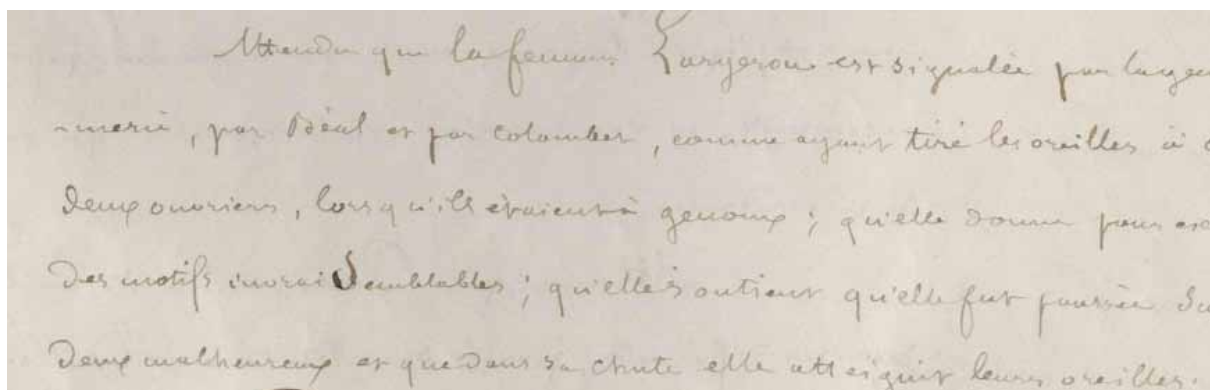 Attendu que la femme Largeron est signalée par la gen
-merie, par Béal et par Colomber, comme ayant tiré les oreilles à
deux ouvriers, lorsqu'ils étaient à genoux ; qu'elle donne pour
des motifs invraiSemblables ; qu'elle soutient qu'elle fut poussée
deux malheureux et que dans sa chute elle atteignit leurs oreilles.